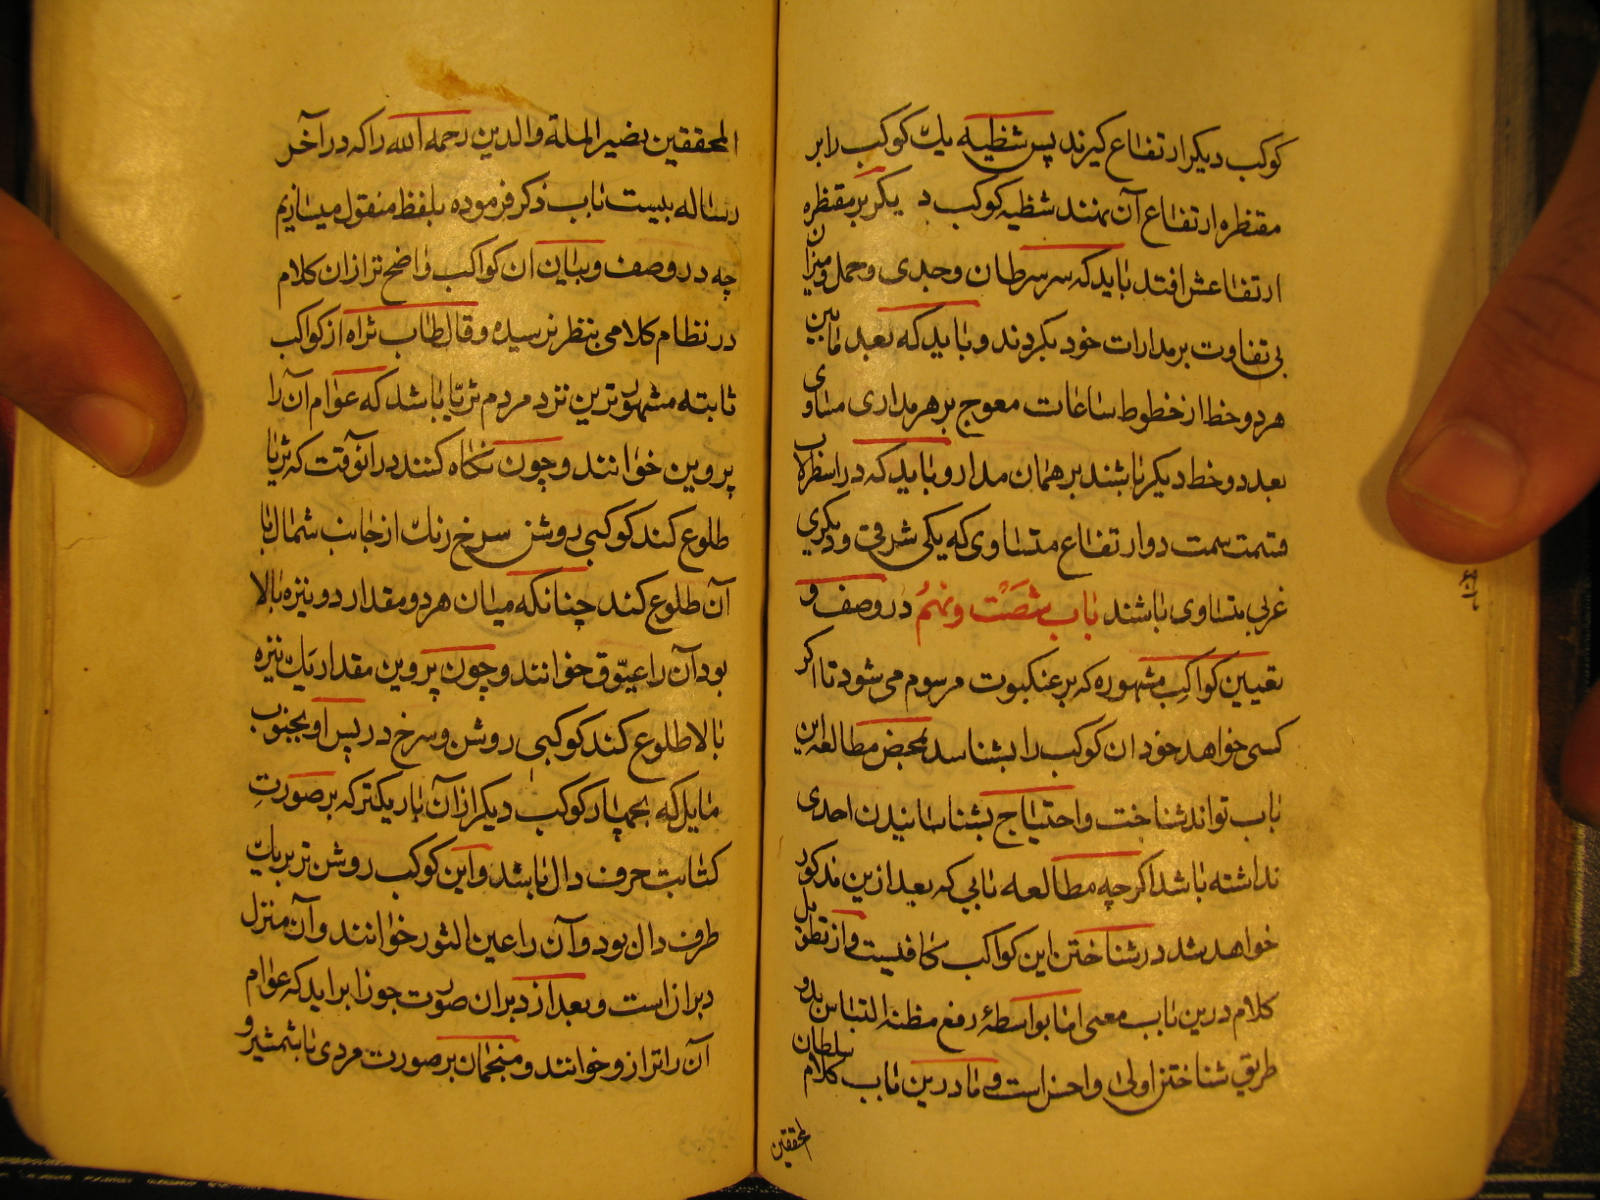 کوکب دیکر ارتفاع کیرند پس شظیه یك کوکب را بر
مقنظره ارتفاع آن نهند شظیه کوکب دیکر بر مقنظره
ارتفاعش افتد باید که سر سرطان و جدی و حمل و میزان
بی تفاوت بر مدارات خود بکردند و باید که بعد مابین
هر دو خط از خطوط ساعات معوج بر هر مداری مساوی
بعد دو خط دیکر باشند بر همان مدار و باید که در اسطرلاب
قسمت سمت دوار تفاع متساوی که یکی شرقی و دیکری
غربی متساوی باشند باب شصت و نهم در وصف و
تعیین کواکب مشهوره که بر عنکبوت مرسوم می شود تا اکر
کسی خواهد خود آن کوکب را بشناسد بمحض مطالعه این
باب تواند شناخت و احتیاج بشناسانیدن احدی
نداشته باشد اکرچه مطالعه بابی که بعد ازین مذکور
خواهد شد در شناختن این کواکب کافیست و از تطویل
کلام درین باب معنی اما بواسطهٔ رفع مظنه التباس بدو
طریق شناختن اولی و احسن است و ما درین باب کلام سلطان
المحققین
المحققین نصیر الملة والدین رحمه الله را که در آخر
رساله بیست باب ذکر فرموده بلفظ منقول میسازیم
چه در وصف و بیان آن کواکب واضح تر از ان کلام
در نظام کلامی بنظر نرسیده و قال طاب ثراه از کواکب
ثابته مشهورترین نزد مردم ثریا باشد که عوام آن را
پروین خوانند و چون نکاه کنند در آنوقت که ثریا
طلوع کند کوکبی روشن سرخ رنك از جانب شمال با
آن طلوع کند چنانکه میان هر دو مقدار دو نیزه بالا
بود آن را عیّوق خوانند و چون پروین مقدار یك نیزه
بالا طلوع کند کوکبی روشن و سرخ در پس او بجنوب
مایل که بچهار کوکب دیکر از آن باریکتر که بر صورتِ
کتابت حرف دال باشد و این کوکب روشن تر بر یك
طرف دال بود و آن را عین الثور خوانند و آن منزل
دبران است و بعد از دبران صورت جوزا براید که عوام
آن را ترازو خوانند و منجمان بر صورت مردی با شمشیر و